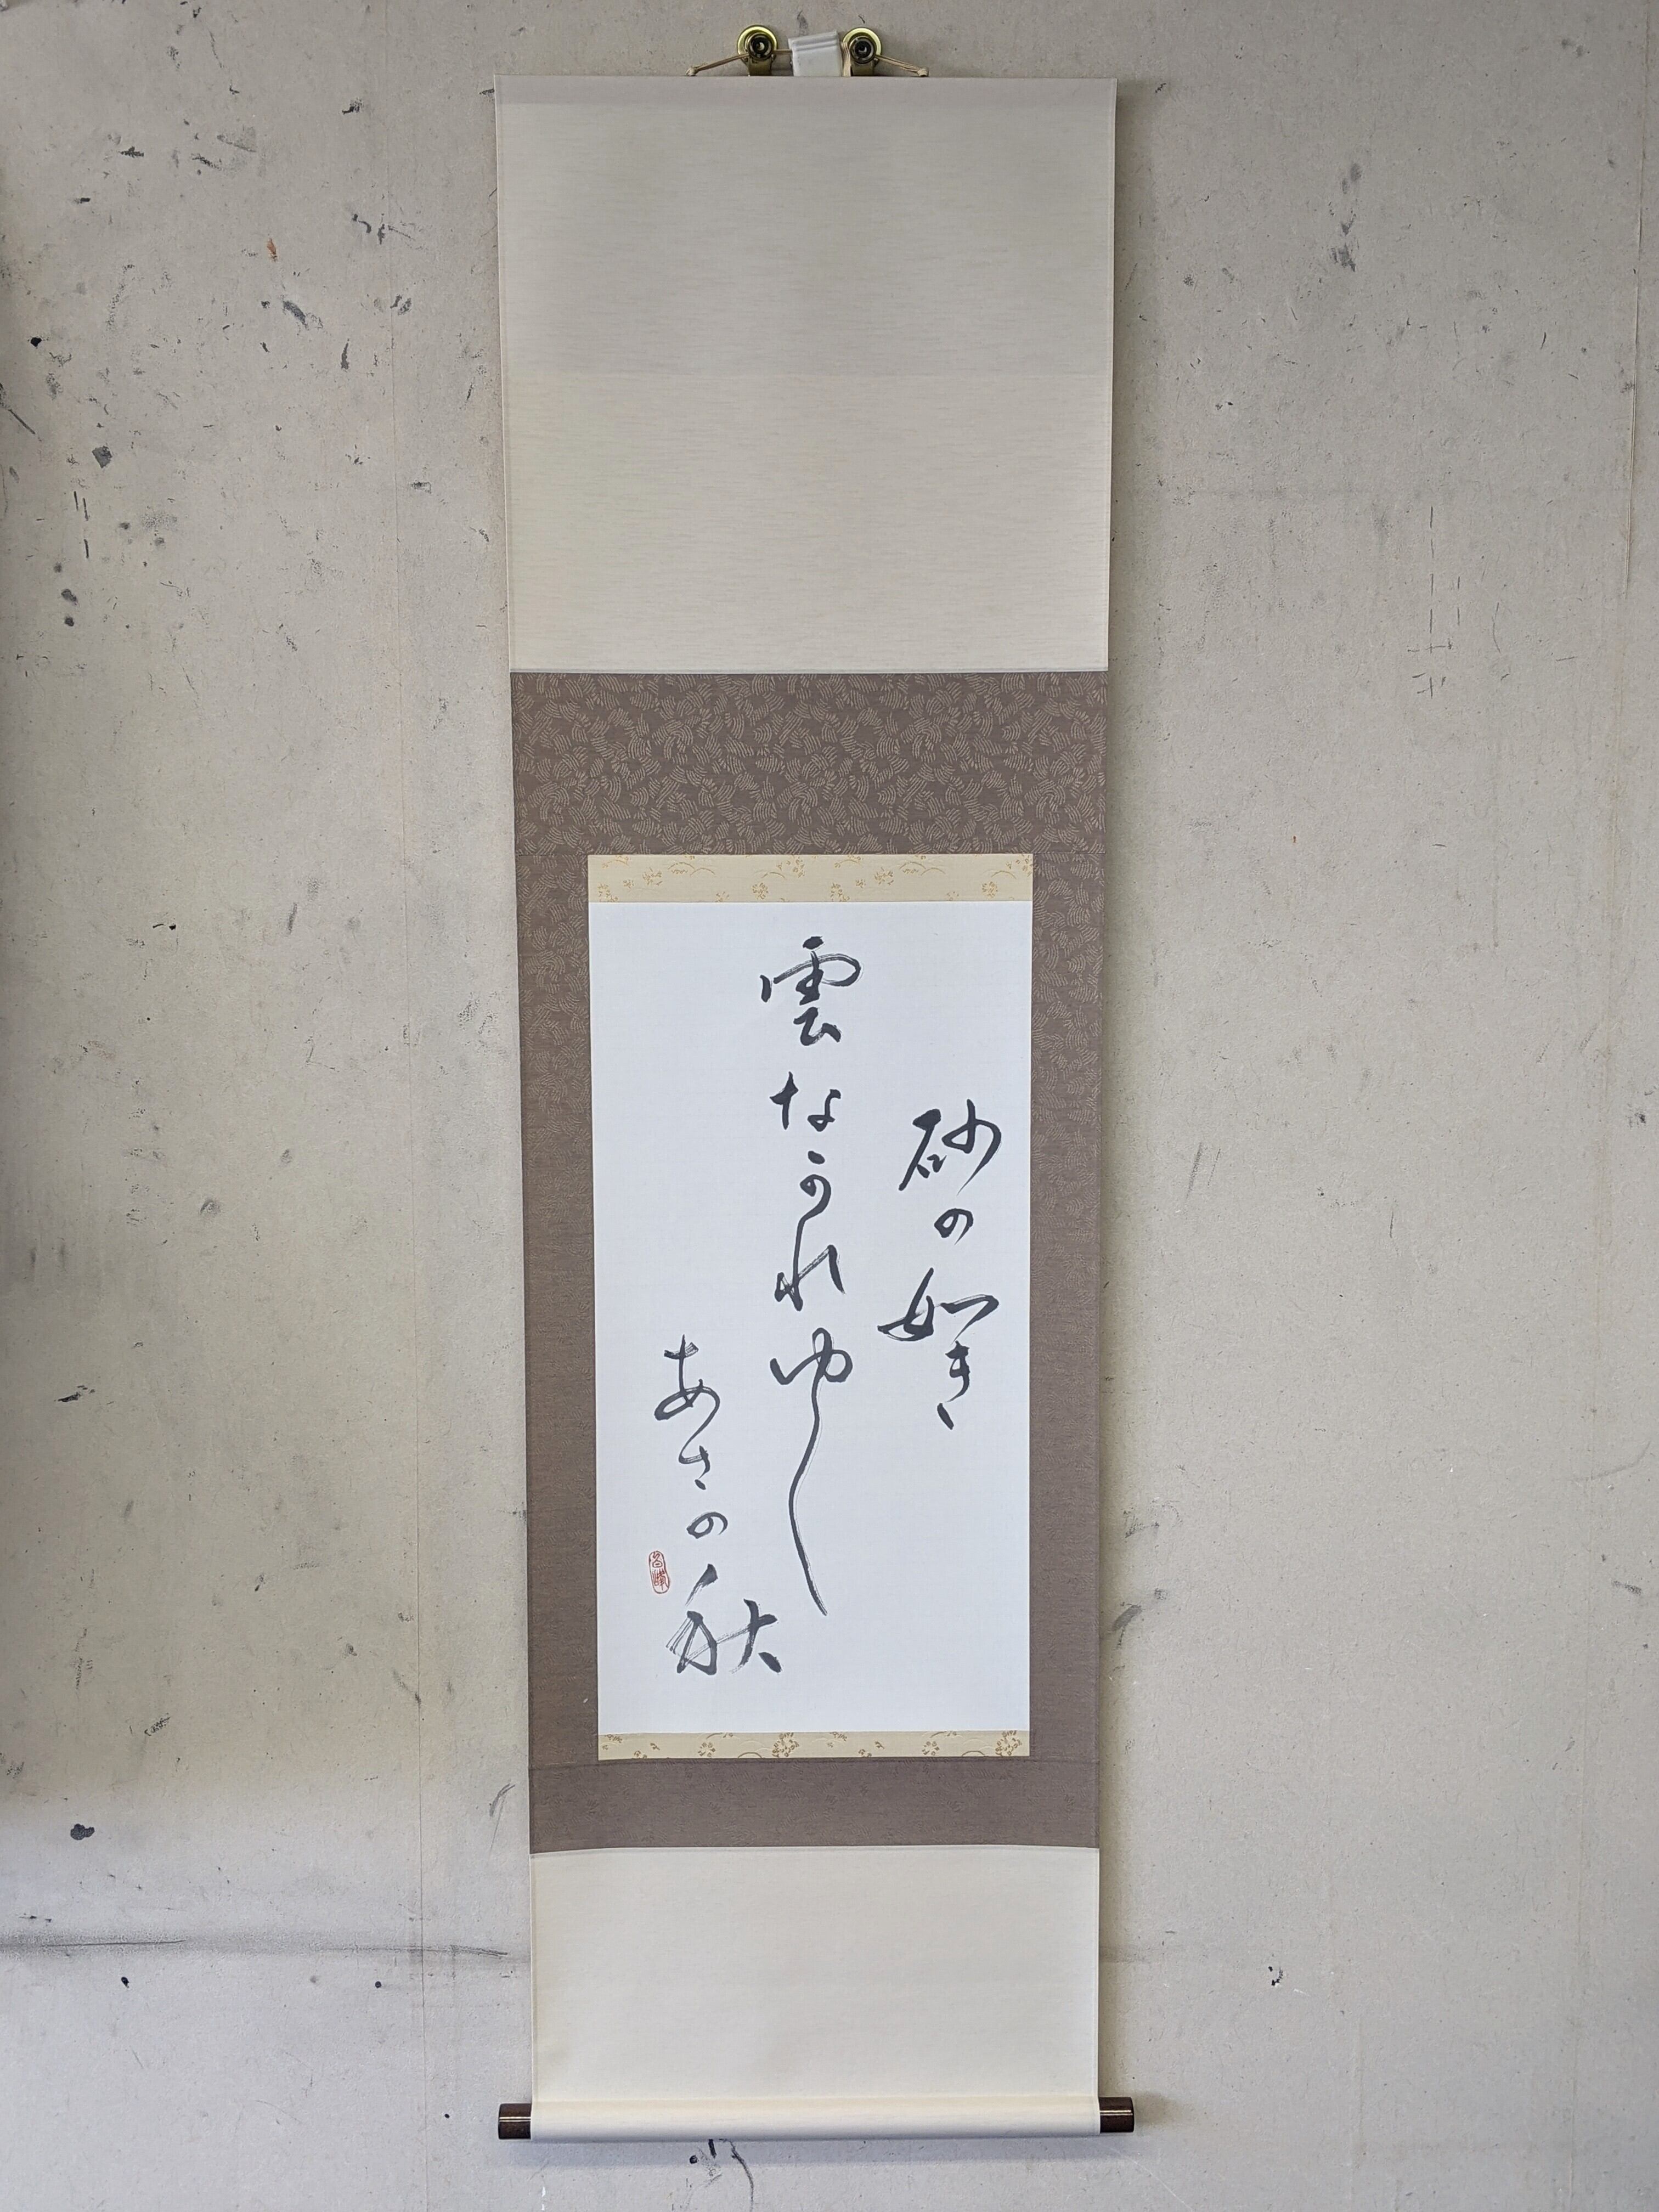 砂の如き
雲ながれゆく
あさの秋